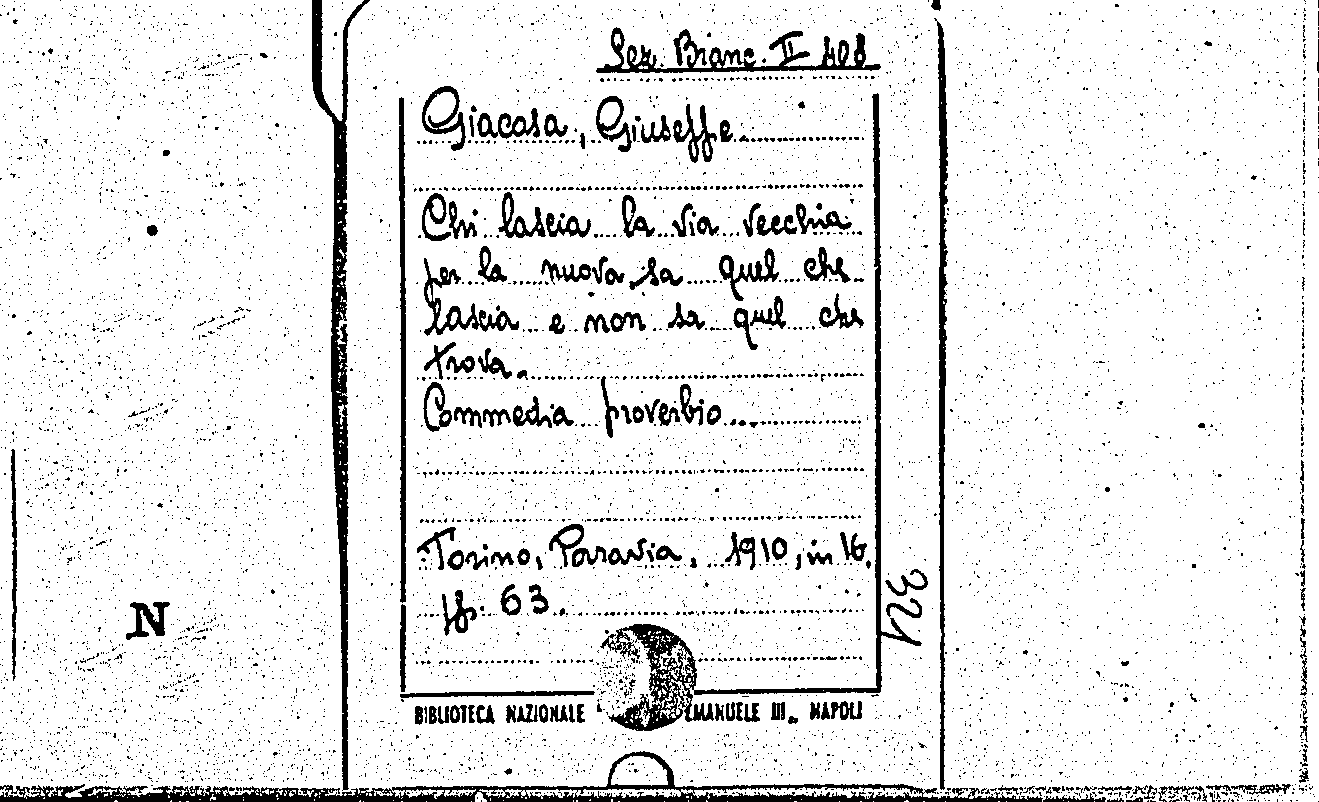 Sez. Bianc. II 408
Giacosa, Giuseppe
Chi lascia la via vecchia
per la nuova sa quel che
lascia e non sa quel che
trova.
Commedia proverbio...
Torino, Paravia, 1910, in 16.
pp. 63.
324
N
BIBLIOTECA NAZIONALE EMANUELE III„ NAPOLI